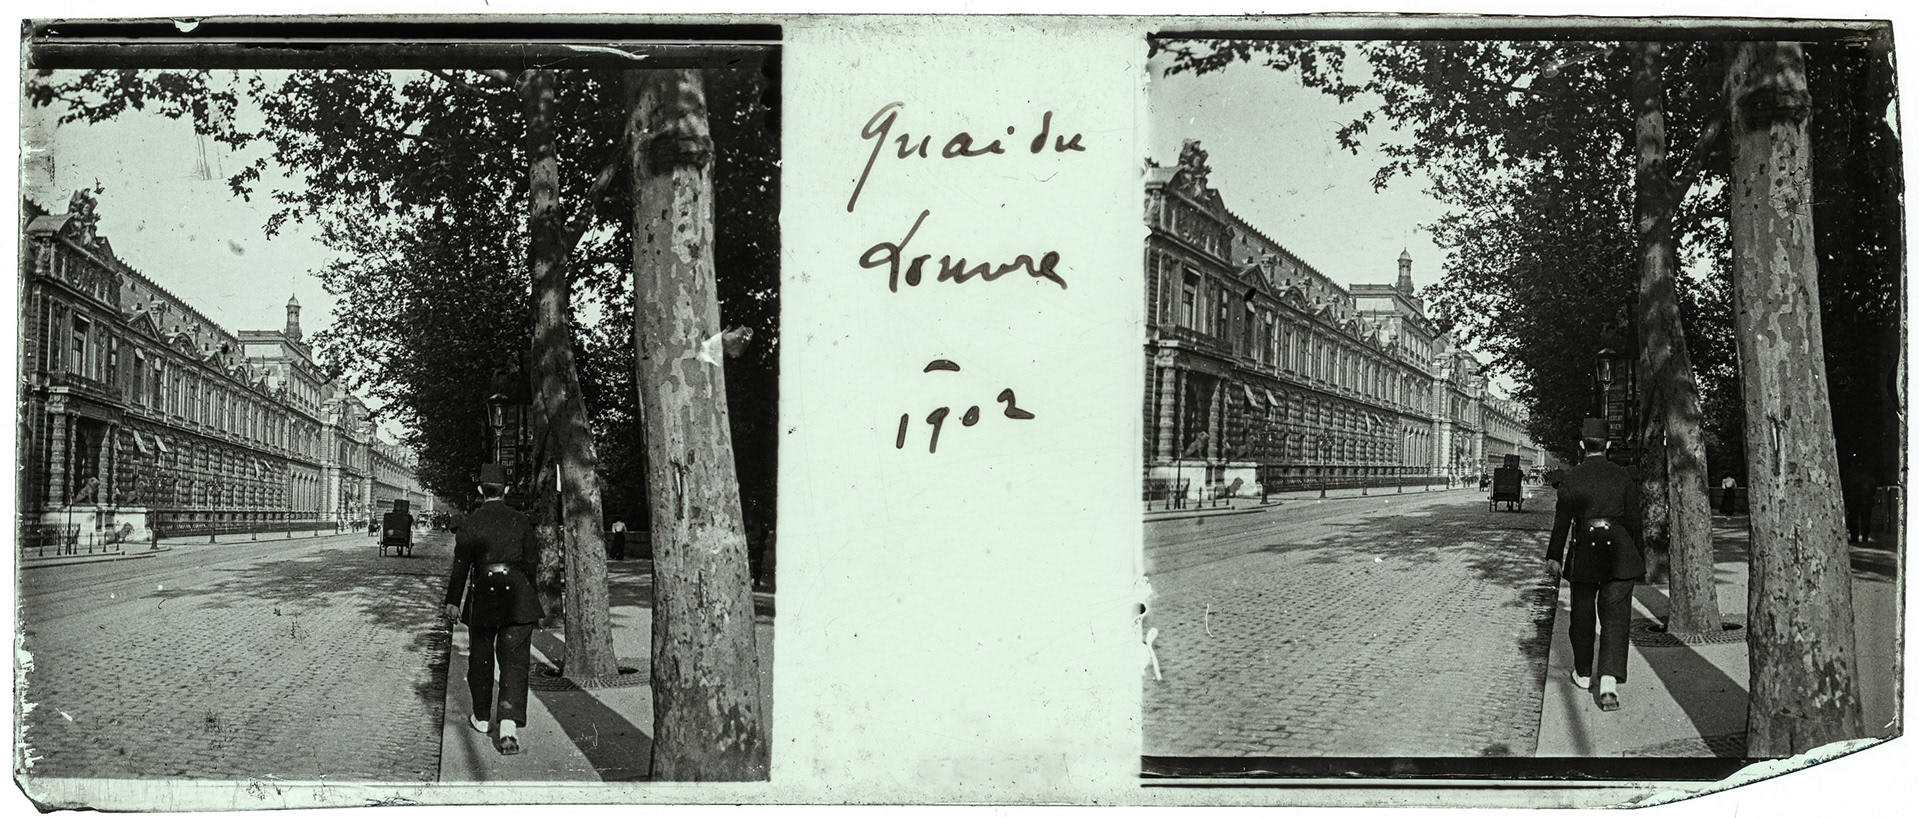 Quai du
Louvre
–
1902